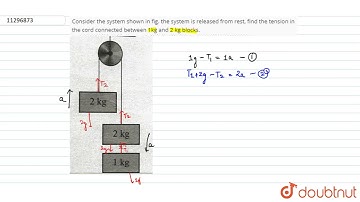 11296873
Consider the system shown in fig. the system is released from rest, find the tension in
the cord connected between 1kg and 2 kg blocks.
1g - T₁ = 1a - ①
T₁+2g - T₂ = 2a - ②
a
T2
2 kg
2g
T2
2 kg
a
2g
T1
1 kg
doubtnut